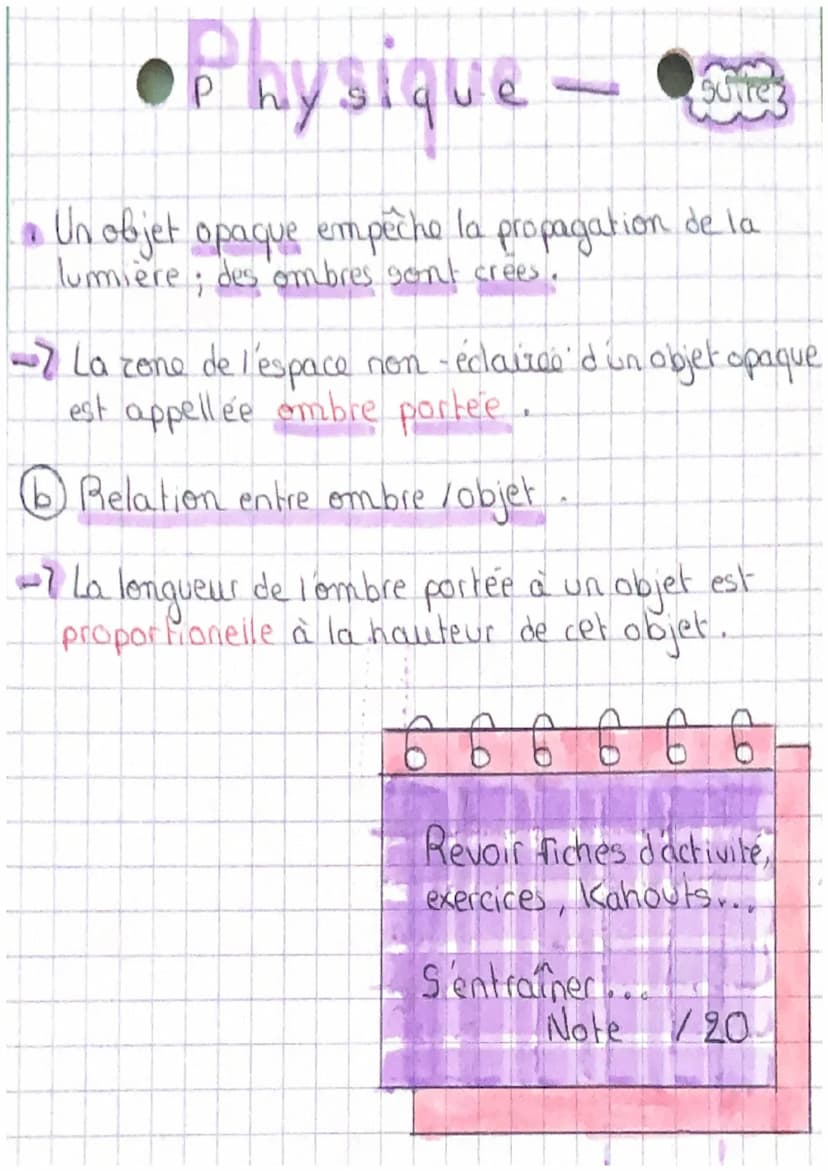 Physique -
suite
• Un objet opaque empêche la propagation de la
lumière ; des ombres sont crées.
→ La zone de l'espace non-éclairée d'un objet opaque
est appellée ombre portée.
(b) Relation entre ombre /objet.
→ La longueur de l'ombre portée à un objet est
proportionelle à la hauteur de cet objet.
Revoir fiches d'activité,
exercices, Kahouts...
S'entraîner...
Note /20